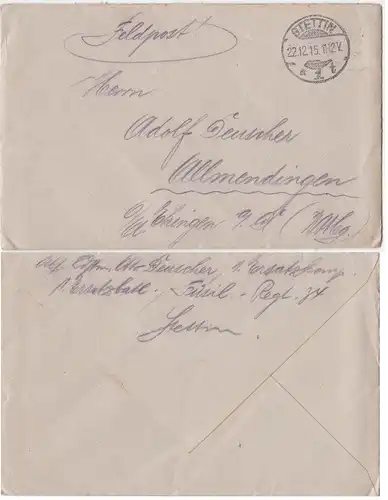 Feldpost!
STETTIN
22.12.15. 11-12V.
* 1 z
Herrn
Adolf Deuscher
Allmendingen
O/A Ehingen a/D (Wttbg.
Otto Deuscher, 1. Ersatzkomp.
1. Ersatzbatl. Füsil-Regt. 34
Stettin